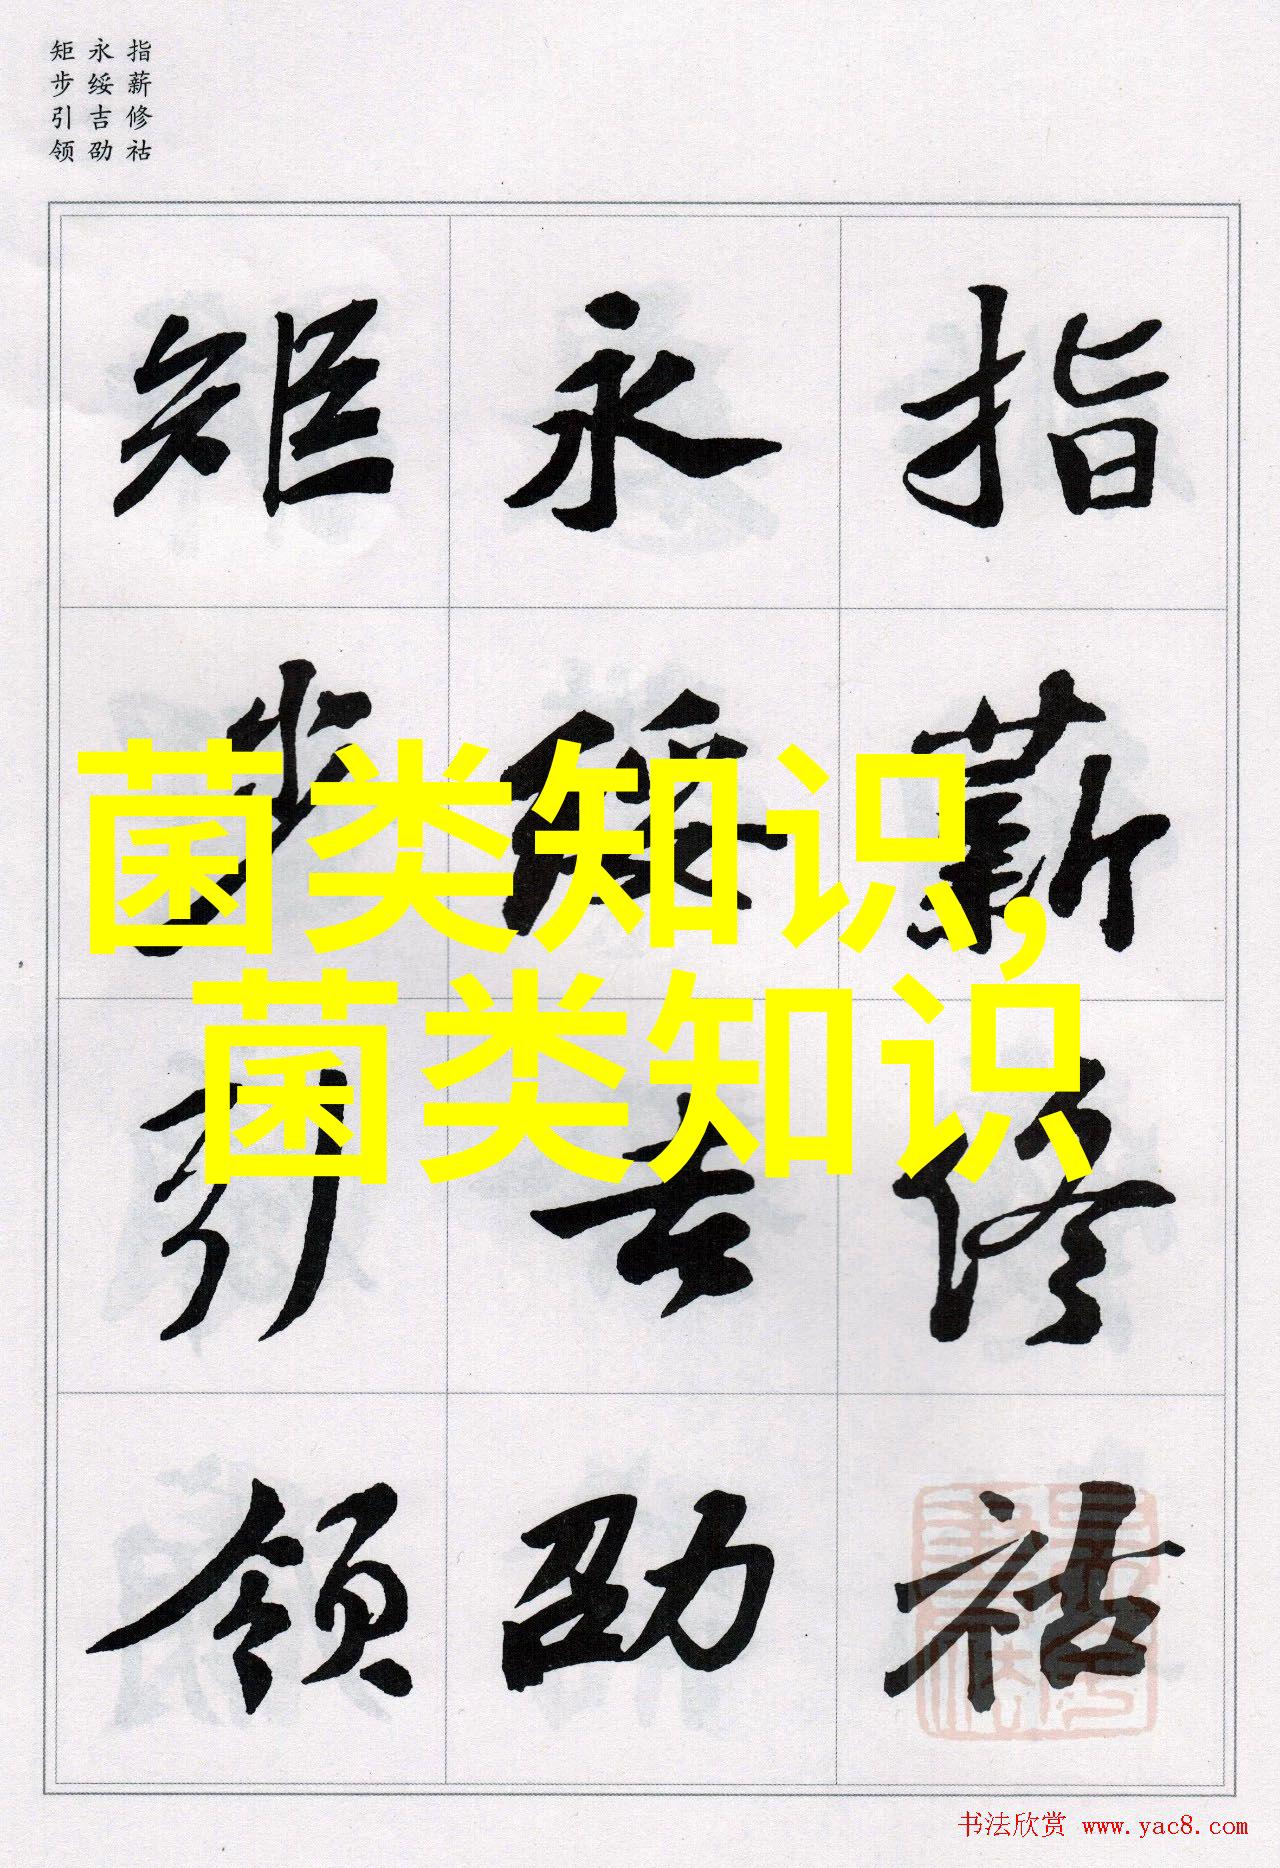 指薪修祜
永绥吉劭
矩步引领
指薪修祜
永绥吉劭
矩步引领
菌类知识,
菌类知识
书法欣赏 www.yac8.com